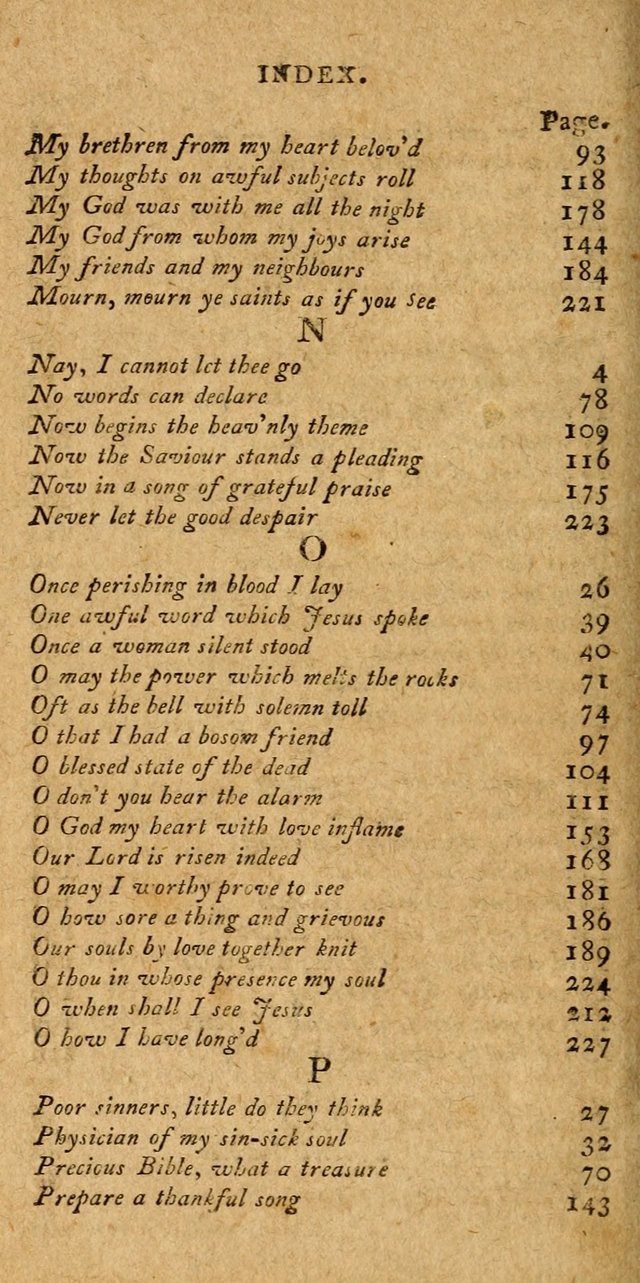 INDEX.
Page.
My brethren from my heart belov'd 93
My thoughts on awful subjects roll 118
My God was with me all the night 178
My God from whom my joys arise 144
My friends and my neighbours 184
Mourn, mourn ye saints as if you see 221
N
Nay, I cannot let thee go 4
No words can declare 78
Now begins the heav'nly theme 109
Now the Saviour stands a pleading 116
Now in a song of grateful praise 175
Never let the good despair 223
O
Once perishing in blood I lay 26
One awful word which Jesus spoke 39
Once a woman silent stood 40
O may the power which melts the rocks 71
Oft as the bell with solemn toll 74
O that I had a bosom friend 97
O blessed state of the dead 104
O don't you hear the alarm 111
O God my heart with love inflame 153
Our Lord is risen indeed 168
O may I worthy prove to see 181
O how sore a thing and grievous 186
Our souls by love together knit 189
O thou in whose presence my soul 224
O when shall I see Jesus 212
O how I have long'd 227
P
Poor sinners, little do they think 27
Physician of my sin-sick soul 32
Precious Bible, what a treasure 70
Prepare a thankful song 143